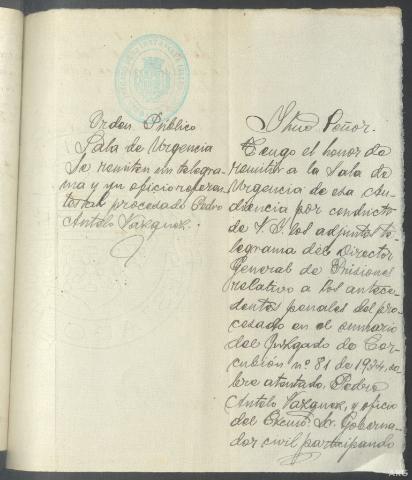 Orden Público
Sala de Urgencia
Se remiten un telegra-
ma y un oficio referen-
tes al procesado Pedro
Antelo Vazquez.
Ilmo Señor.
Tengo el honor de
remitir a la Sala de
Urgencia de esa Au-
diencia por conducto
de V.I. los adjuntos te-
legrama del Director
General de Prisiones
relativo a los antece-
dentes penales del pro-
cesado en el sumario
del Juzgado de Cor-
cubión nº 81 de 1934, so-
bre atentado, Pedro
Antelo Vazquez, y oficio
del Excmo. Sr. Goberna-
dor civil participando